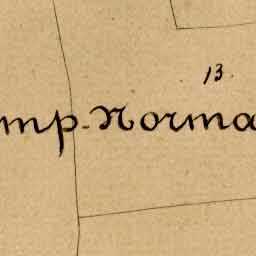 13.
mp. Norma